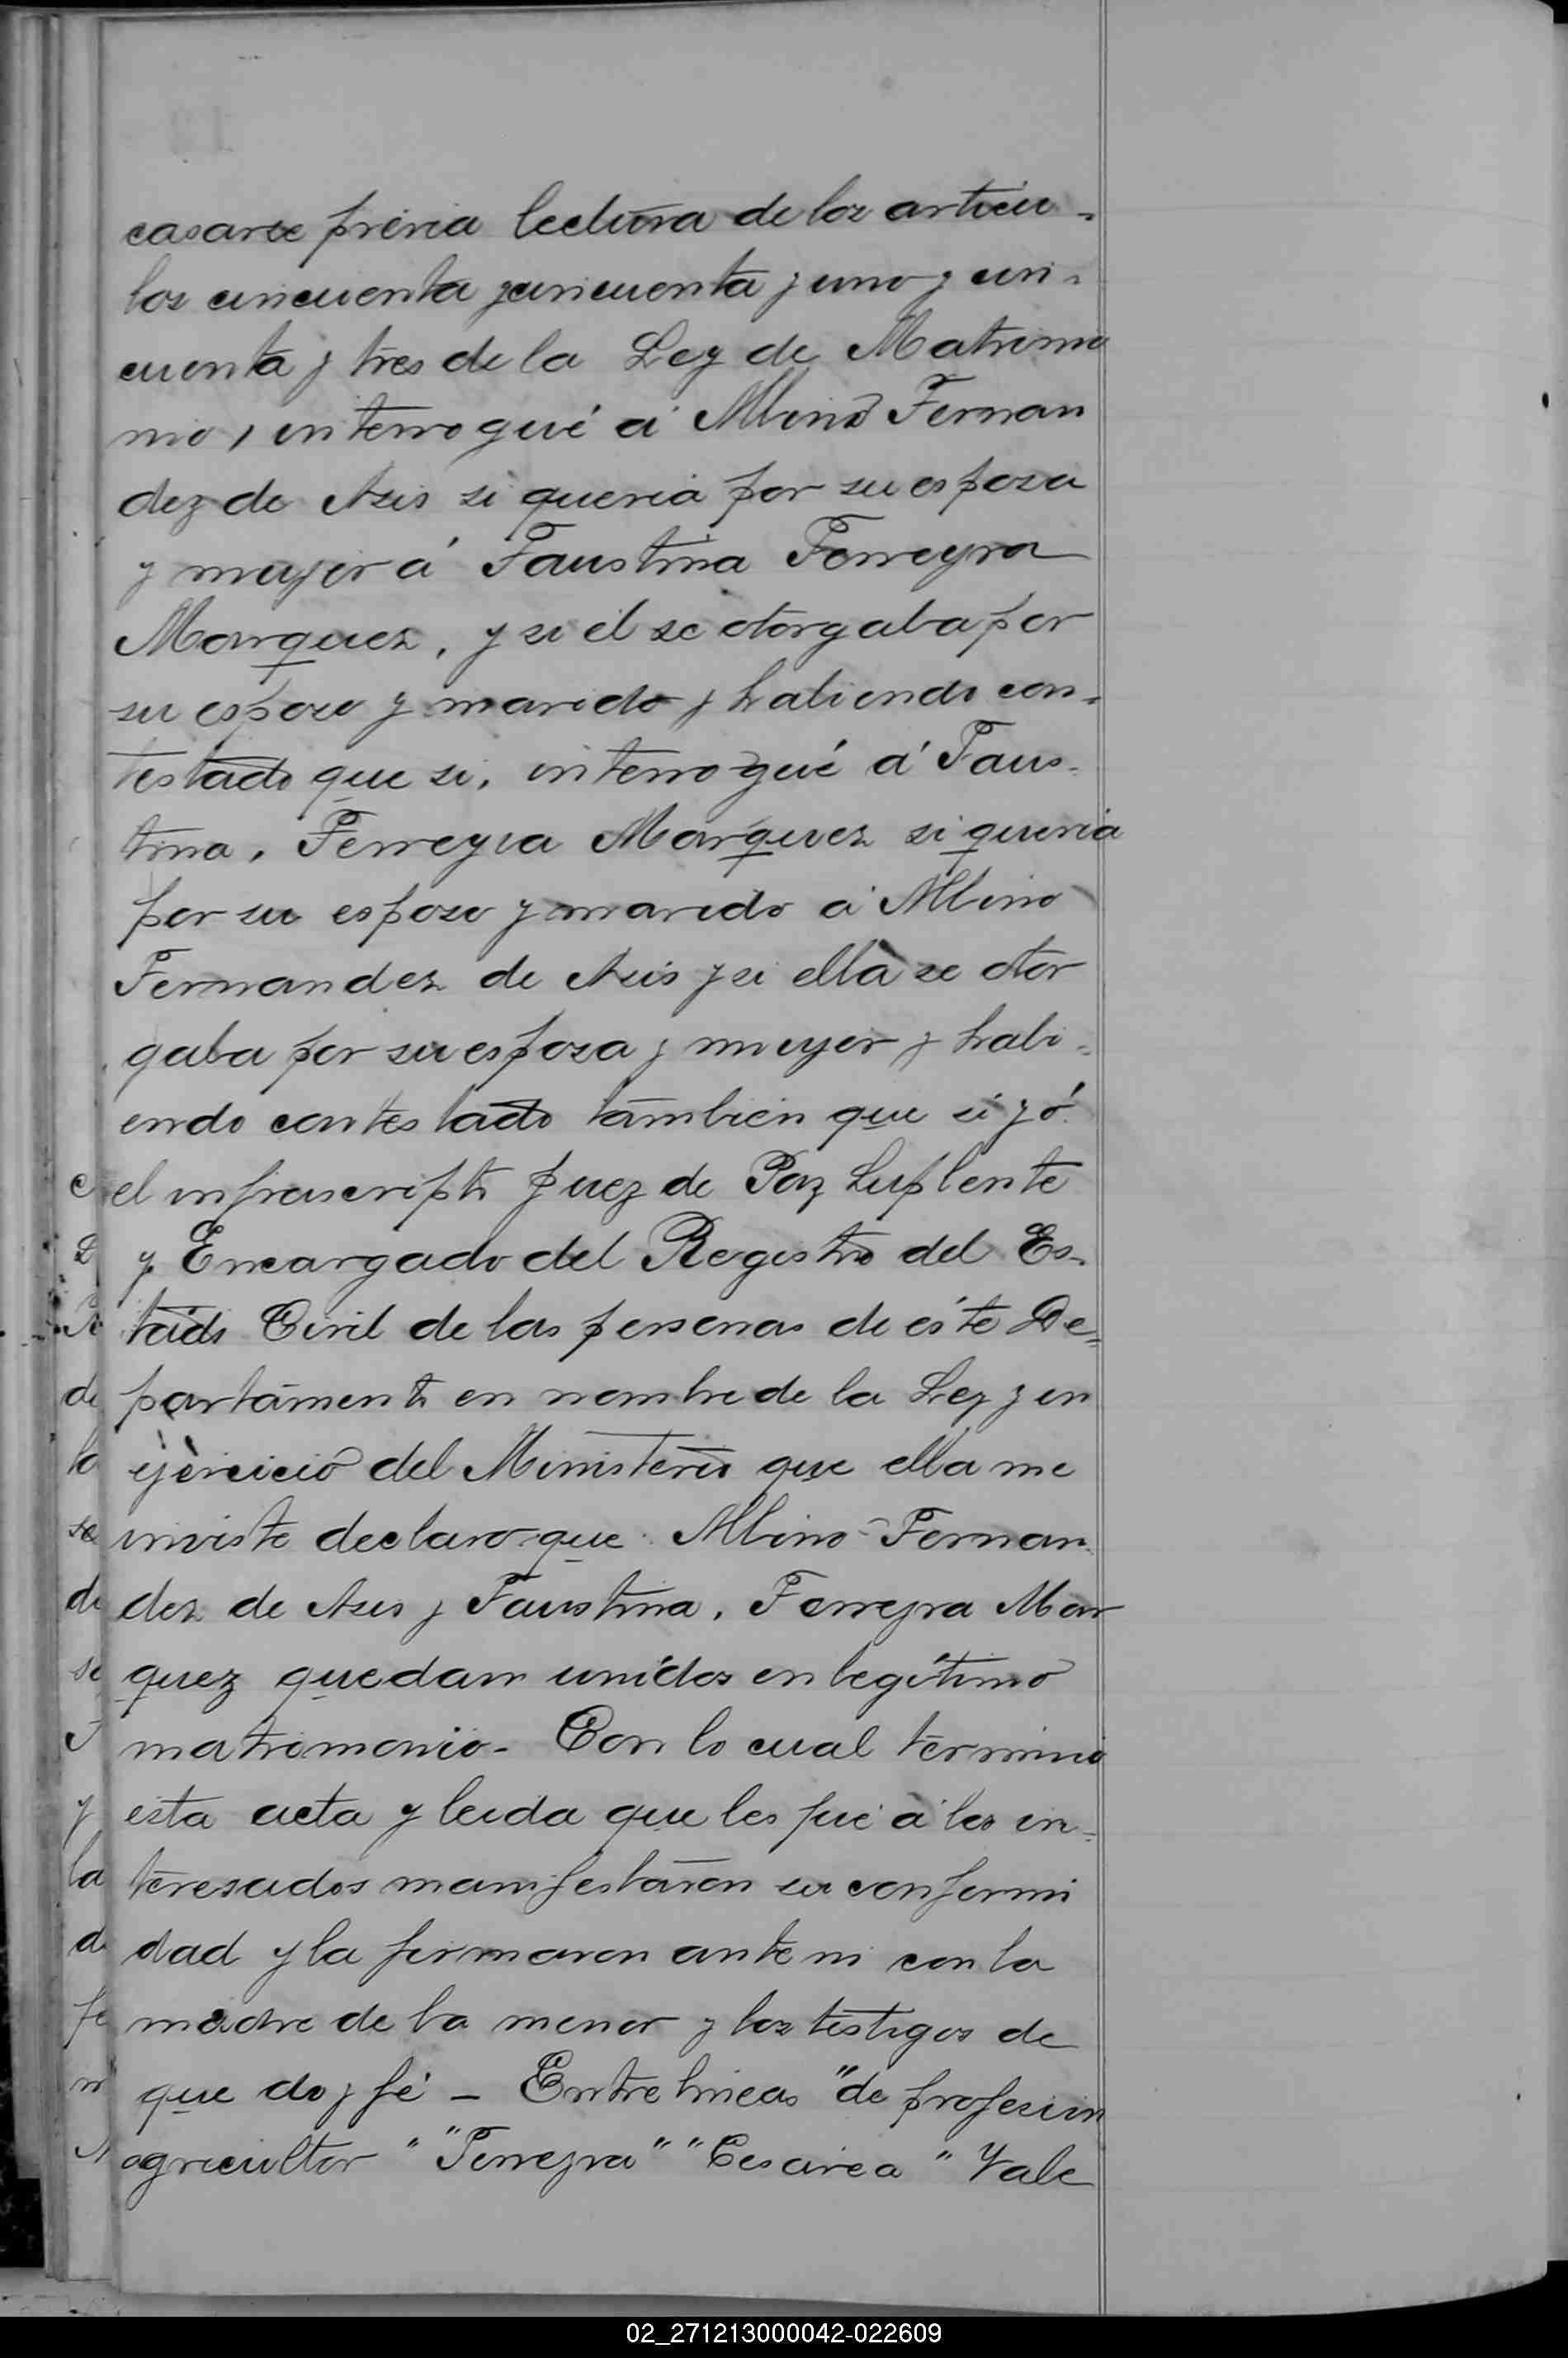 casarse prévia lectura de los articu-
los cincuenta y cincuenta y uno y cin-
cuenta y tres de la Ley de Matrimo
nio, interrogué á Albino Fernan
dez de Asis si queria por su esposa
y mujer á Faustina Ferreyra
Marquez, y si él se otorgaba por
su esposo y marido y habiendo con-
testado que si, interrogué á Faus-
tina, Ferreyra Marquez si queria
por su esposo y marido á Albino
Fernandez de Asis y si ella se otor
gaba por su esposa y mujer y habi-
endo contestado tambien que si yó
el infrascripto Juez de Paz Suplente
y Encargado del Registro del Es-
tado Civil de las personas de éste De=
partamento en nombre de la Ley y en
ejercicio del Ministerio que ella me
inviste declaro que Albino Fernan
dez de Asis y Faustina, Ferreyra Mar
quez quedan unidos en legítimo
matrimonio- Con lo cual terminó
esta acta y leida que les fué á los in=
teresados manifestaron su conformi
dad y la firmaron ante mi con la
madre de la menor y los testigos de
que doy fé - Entre lineas "de profesion
agricultor" "Ferreyra" "Cesarea" Vale
02_271213000042-022609